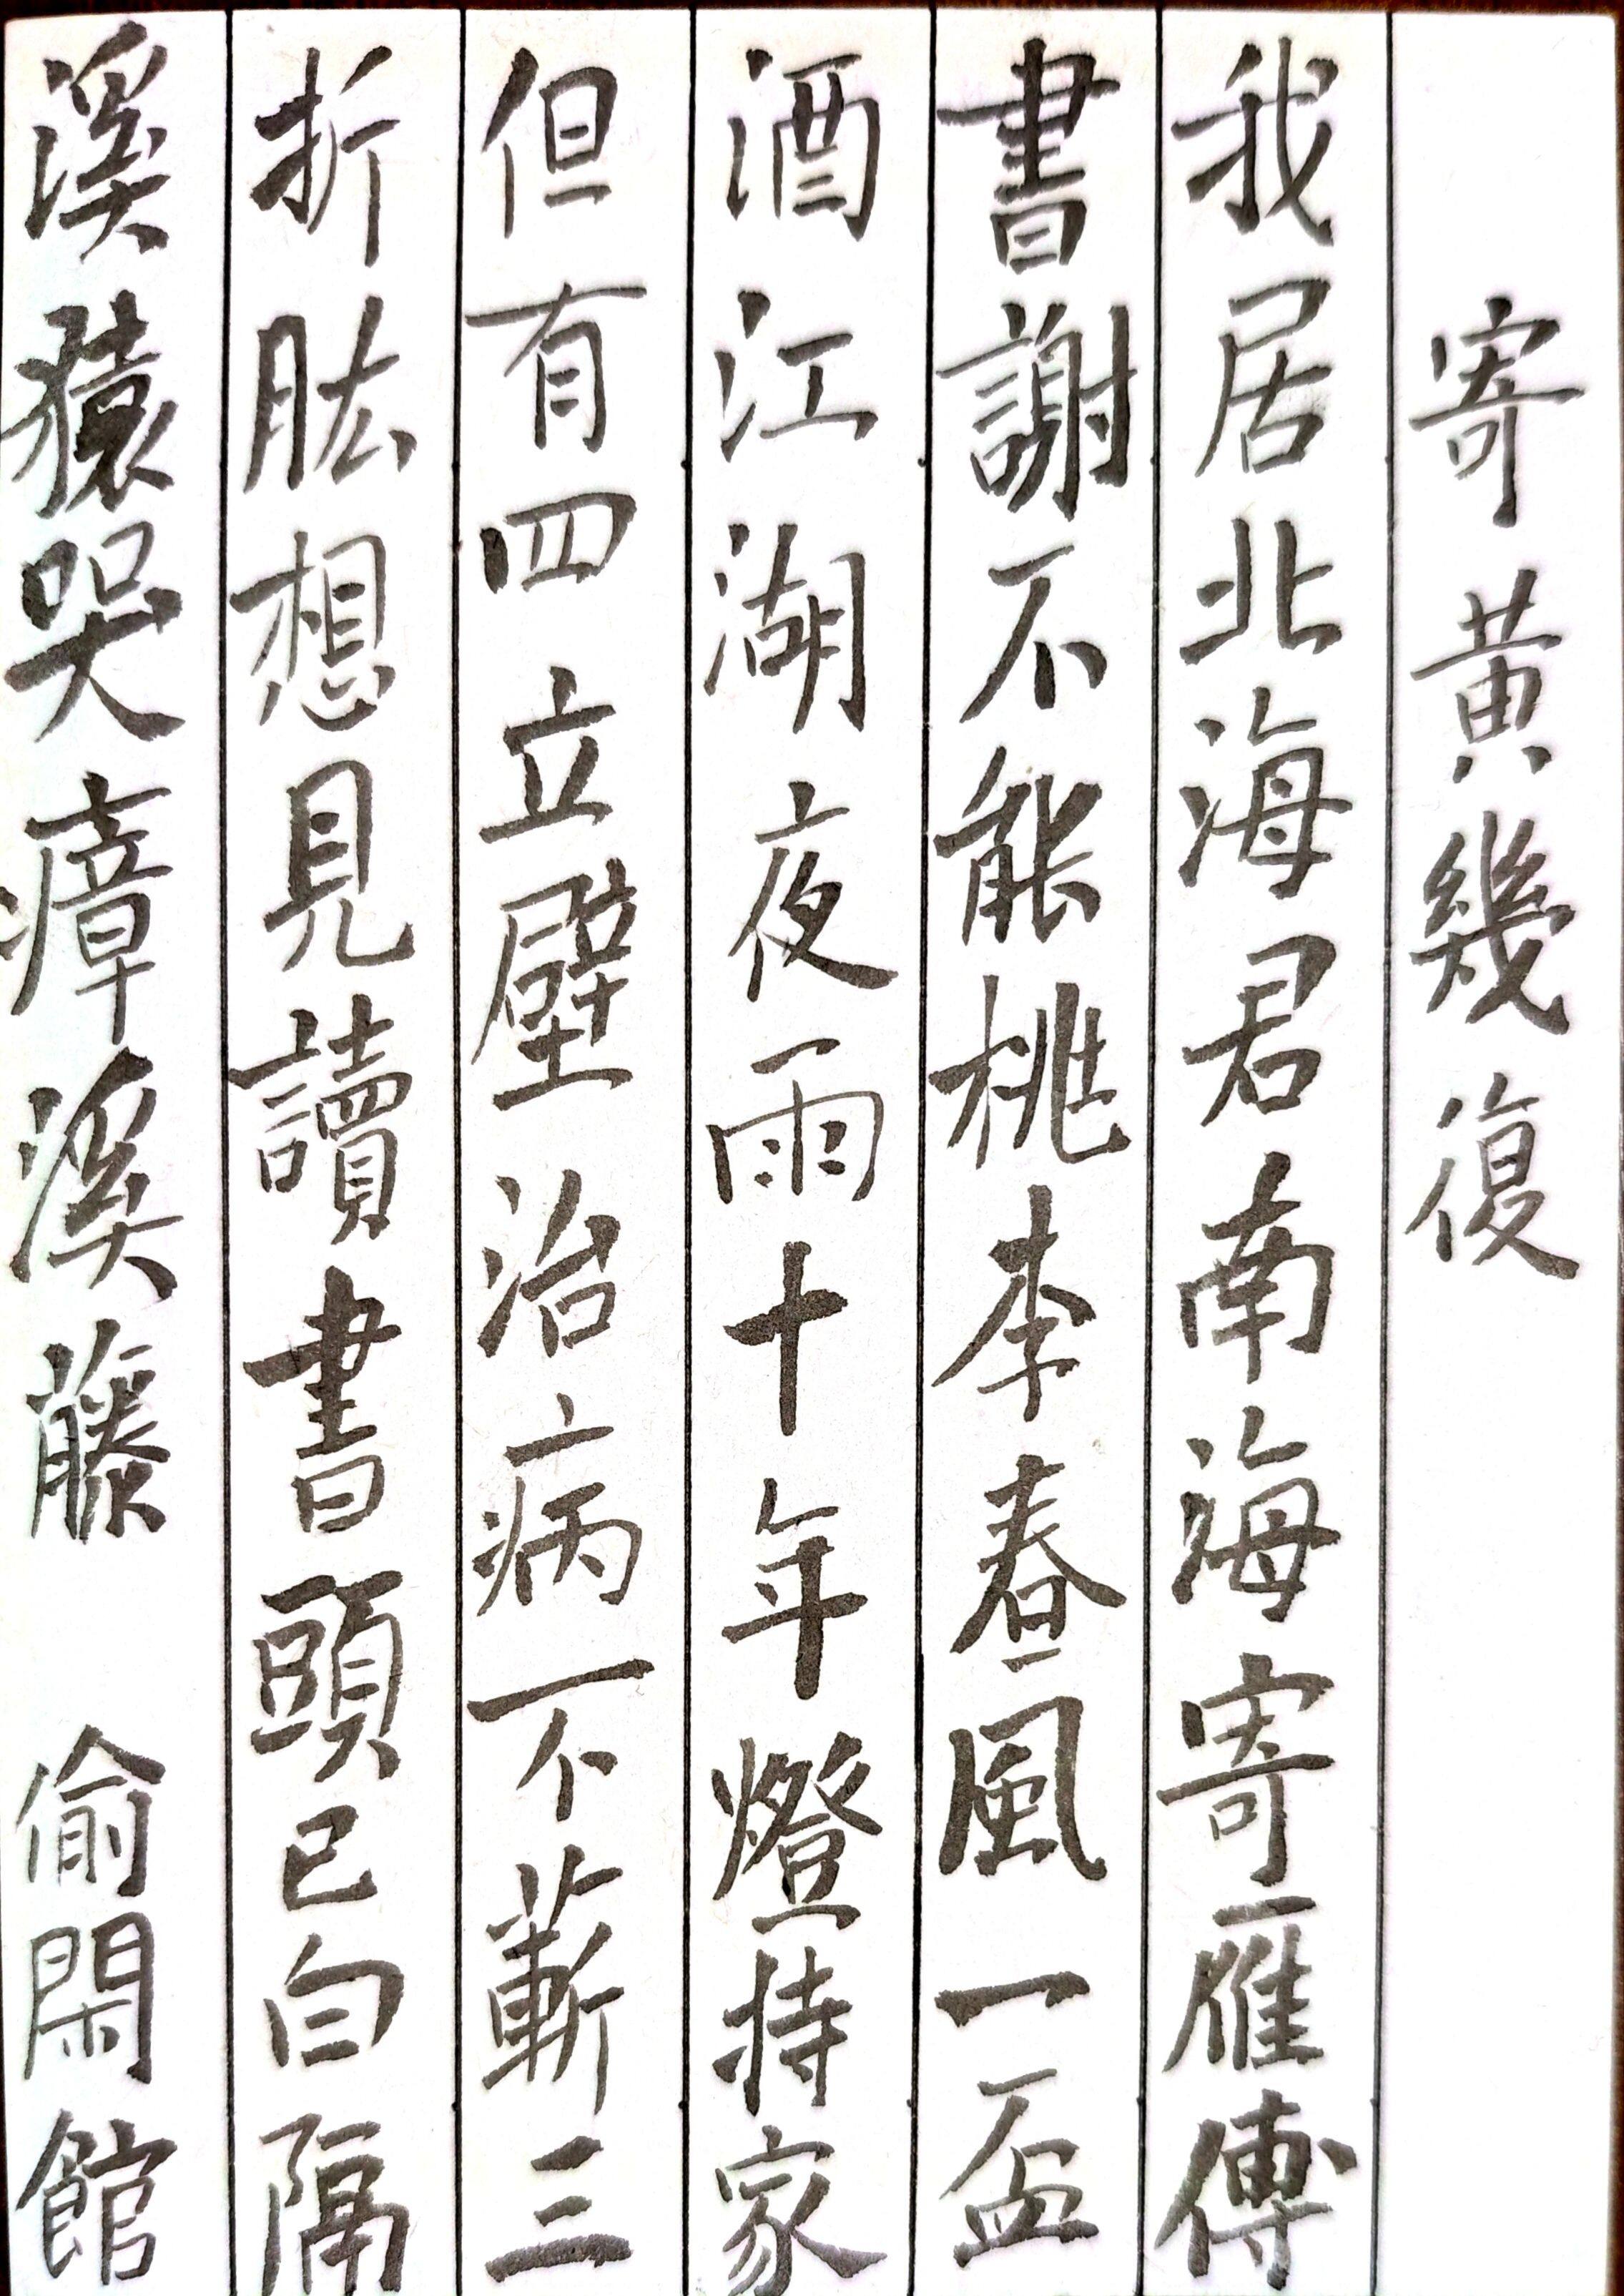 寄黃幾復
我居北海君南海寄雁傳
書謝不能桃李春風一盃
酒江湖夜雨十年燈持家
但有四立壁治病不蘄三
折肱想見讀書頭已白隔
溪猿哭瘴溪藤 偷閑館